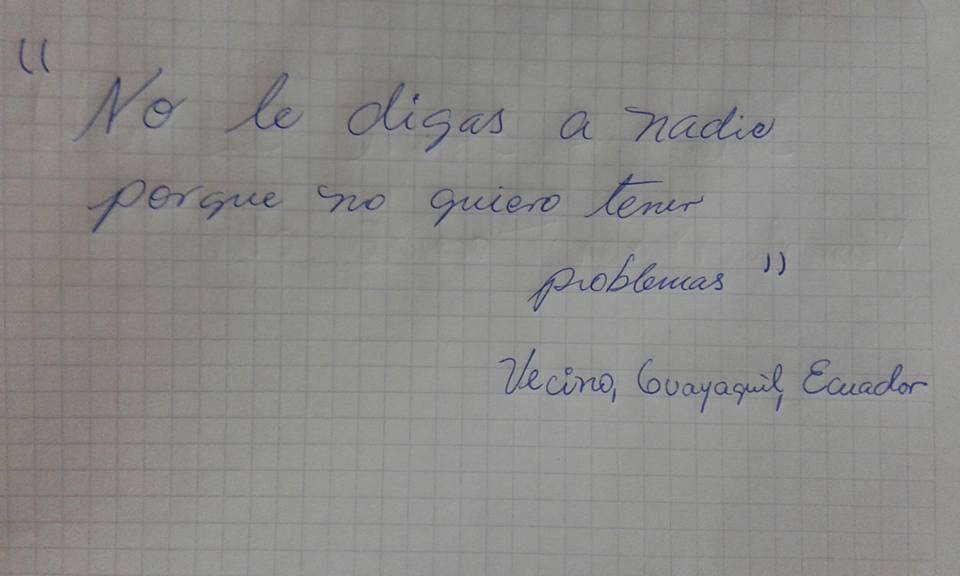 "No le digas a nadie
porque no quiero tener
problemas"
Vecino, Guayaquil, Ecuador